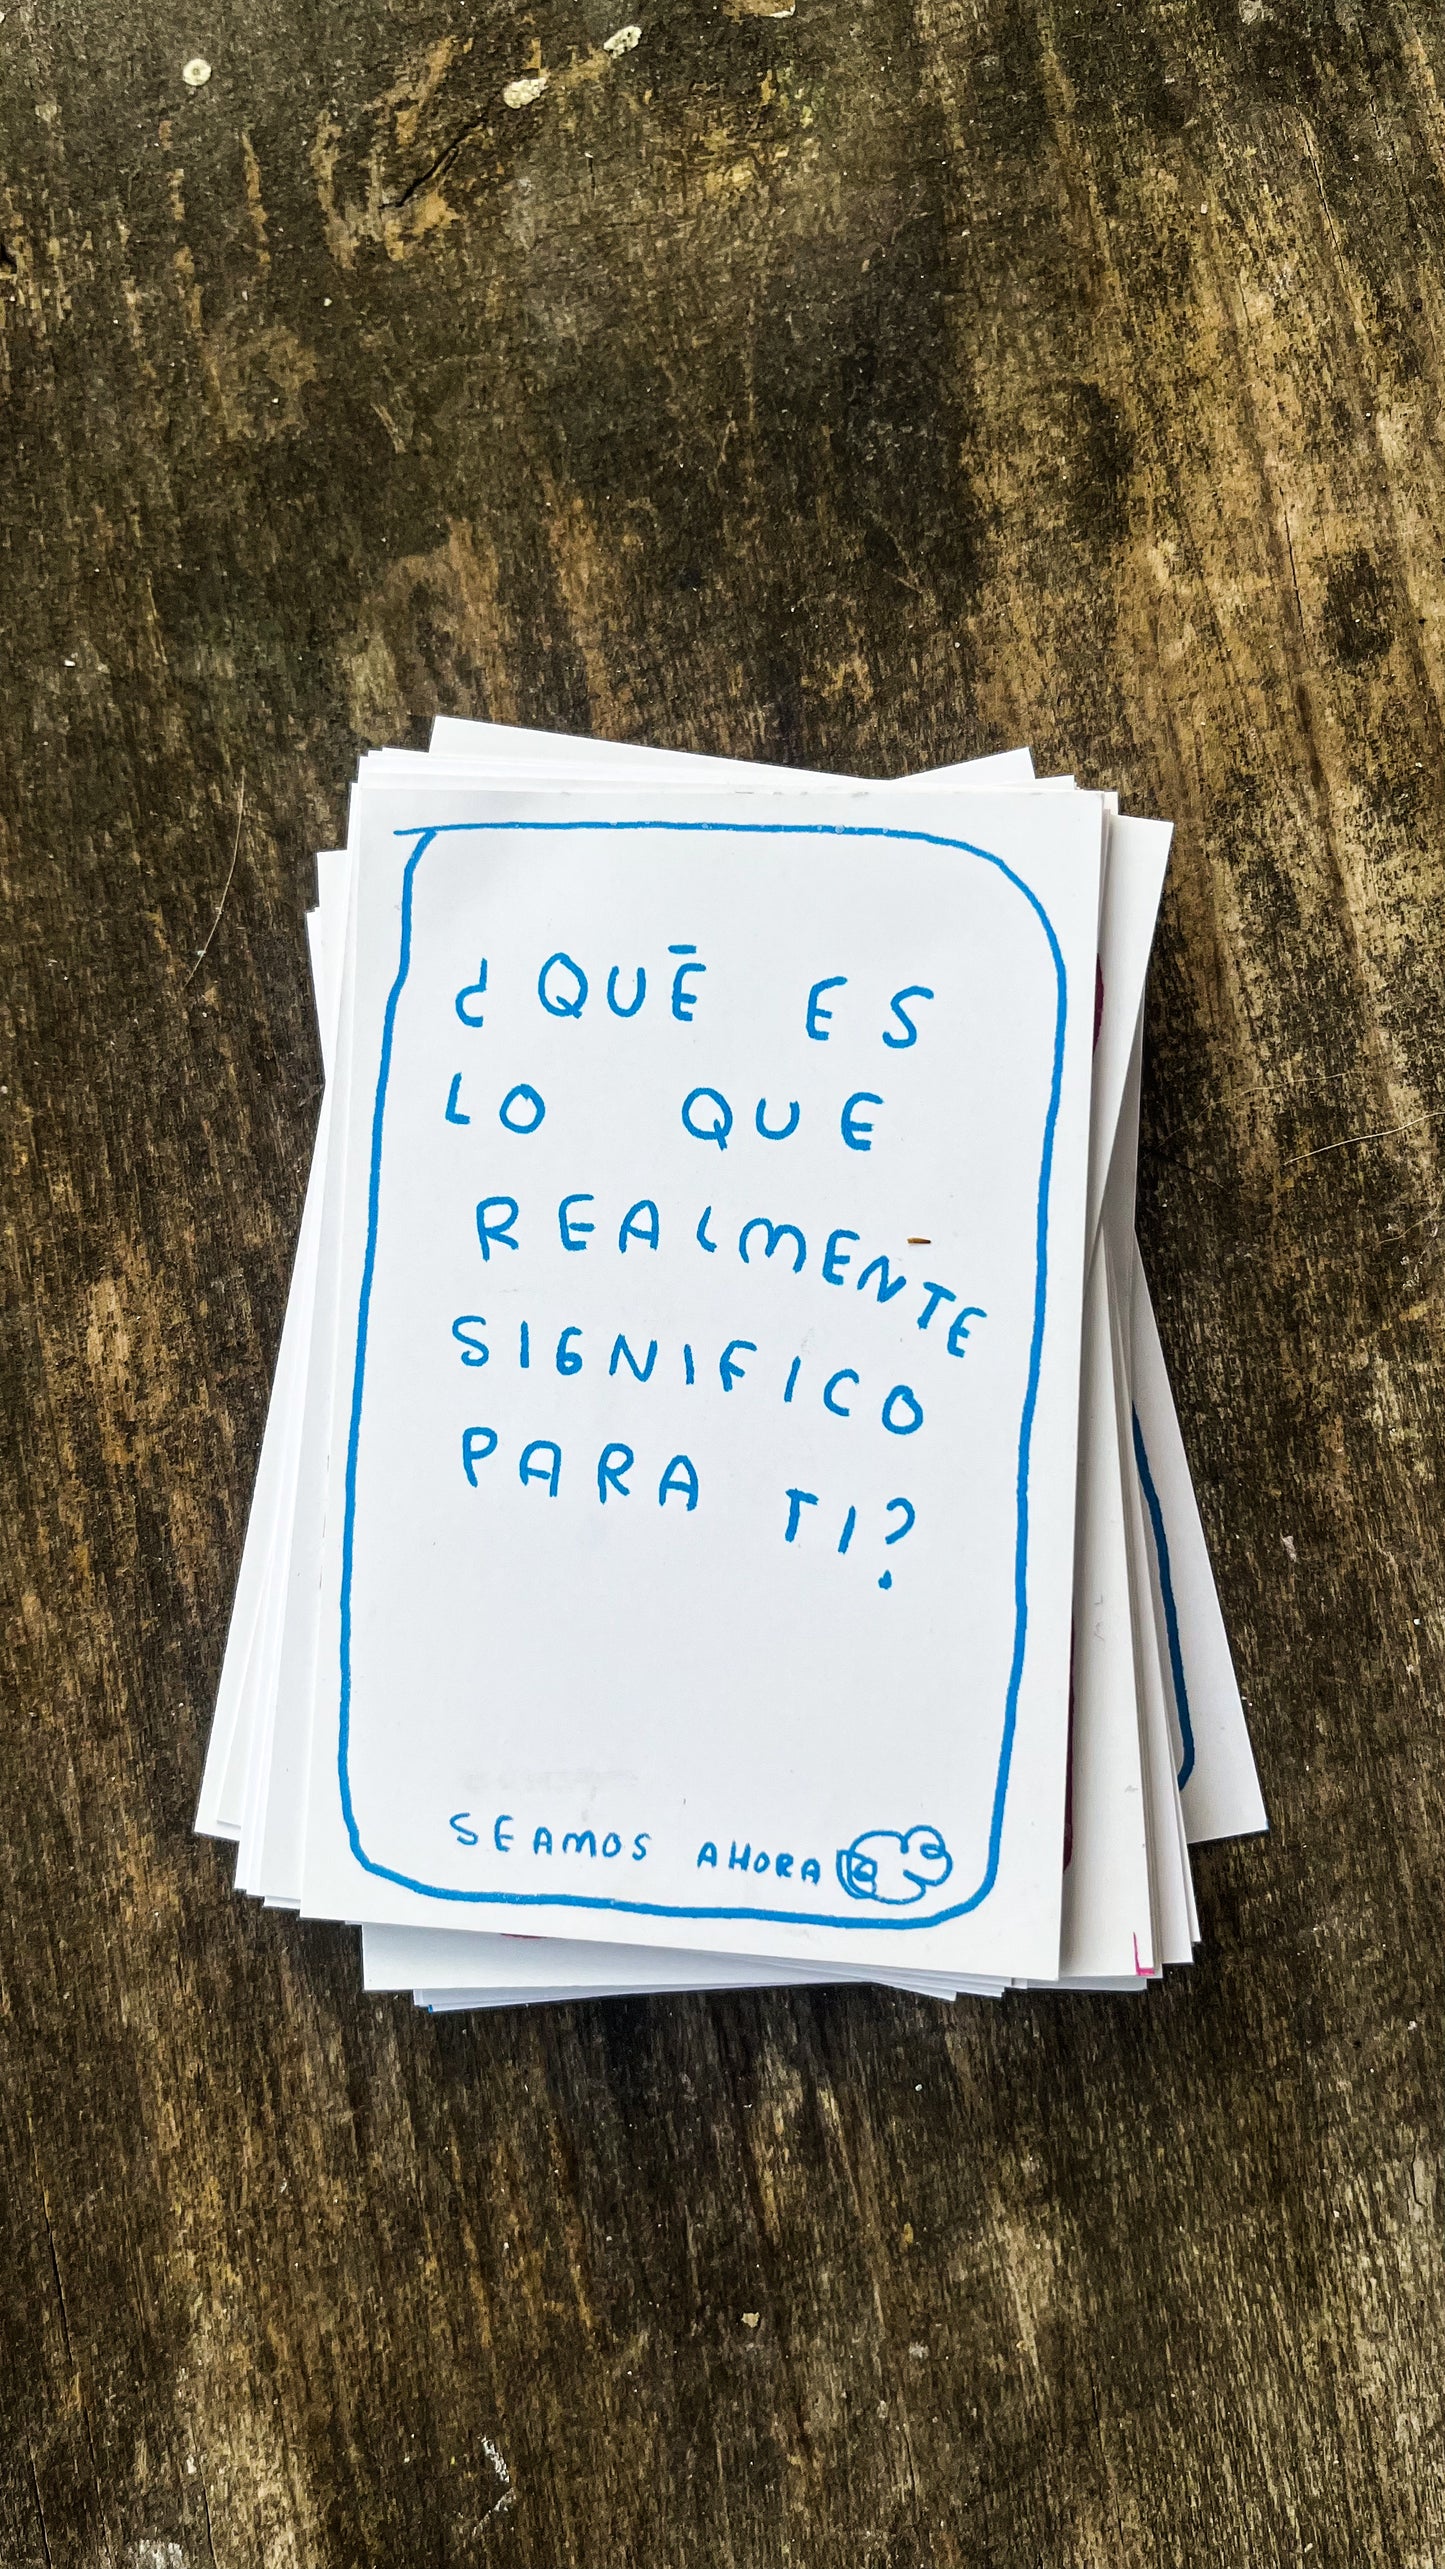 ¿QUÉ ES
LO QUE
REALMENTE
SIGNIFICO
PARA TI?
SEAMOS AHORA